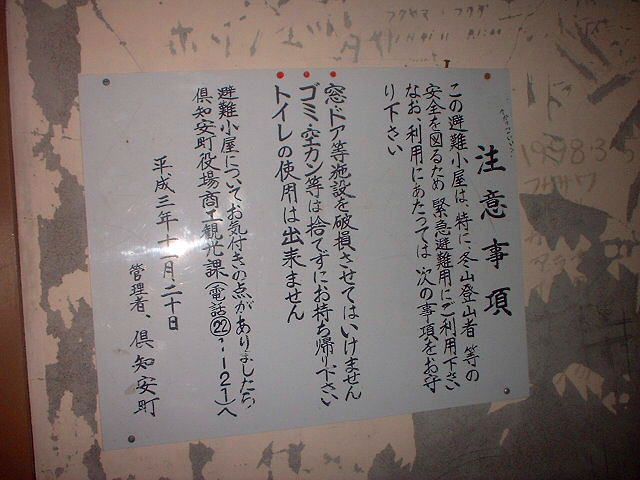 注意事項
この避難小屋は、特に、冬山登山者 等の
安全を図るため 緊急避難用にご利用下さい
なお、利用にあたっては 次の事項をお守
り下さい
窓、ドア等施設を破損させてはいけません
ゴミ、空カン等は捨てずにお持ち帰り下さい
トイレの使用は出来ません
避難小屋についてお気付きの点がありましたら、
倶知安町役場商工観光課(電話㉒-1121)へ
平成三年十一月二十日
管理者、倶知安町
フクヤマ・フクダ
1998.3.5
フジサワ